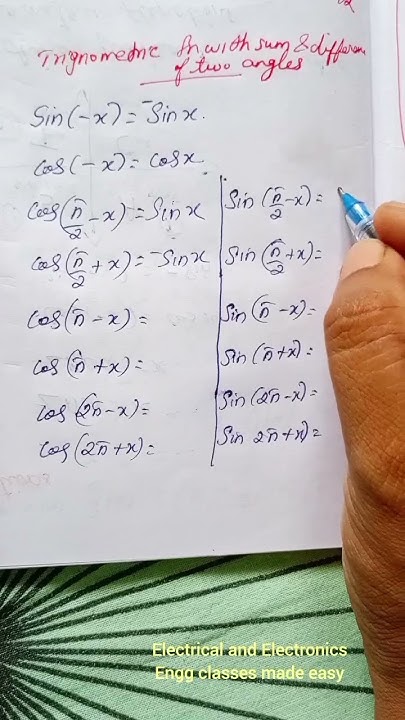 Trignometric fn with sum & differen
of two angles
Sin(-x) = -Sinx.
Cos(-x) = Cosx
Cos(π/2 - x) = Sinx
Cos(π/2 + x) = -Sinx
Cos(π - x) =
Cos(π + x) =
Cos(2π - x) =
Cos(2π + x) =
Sin(π/2 - x) =
Sin(π/2 + x) =
Sin(π - x) =
Sin(π + x) =
Sin(2π - x) =
Sin 2π + x) =
Electrical and Electronics
Engg classes made easy